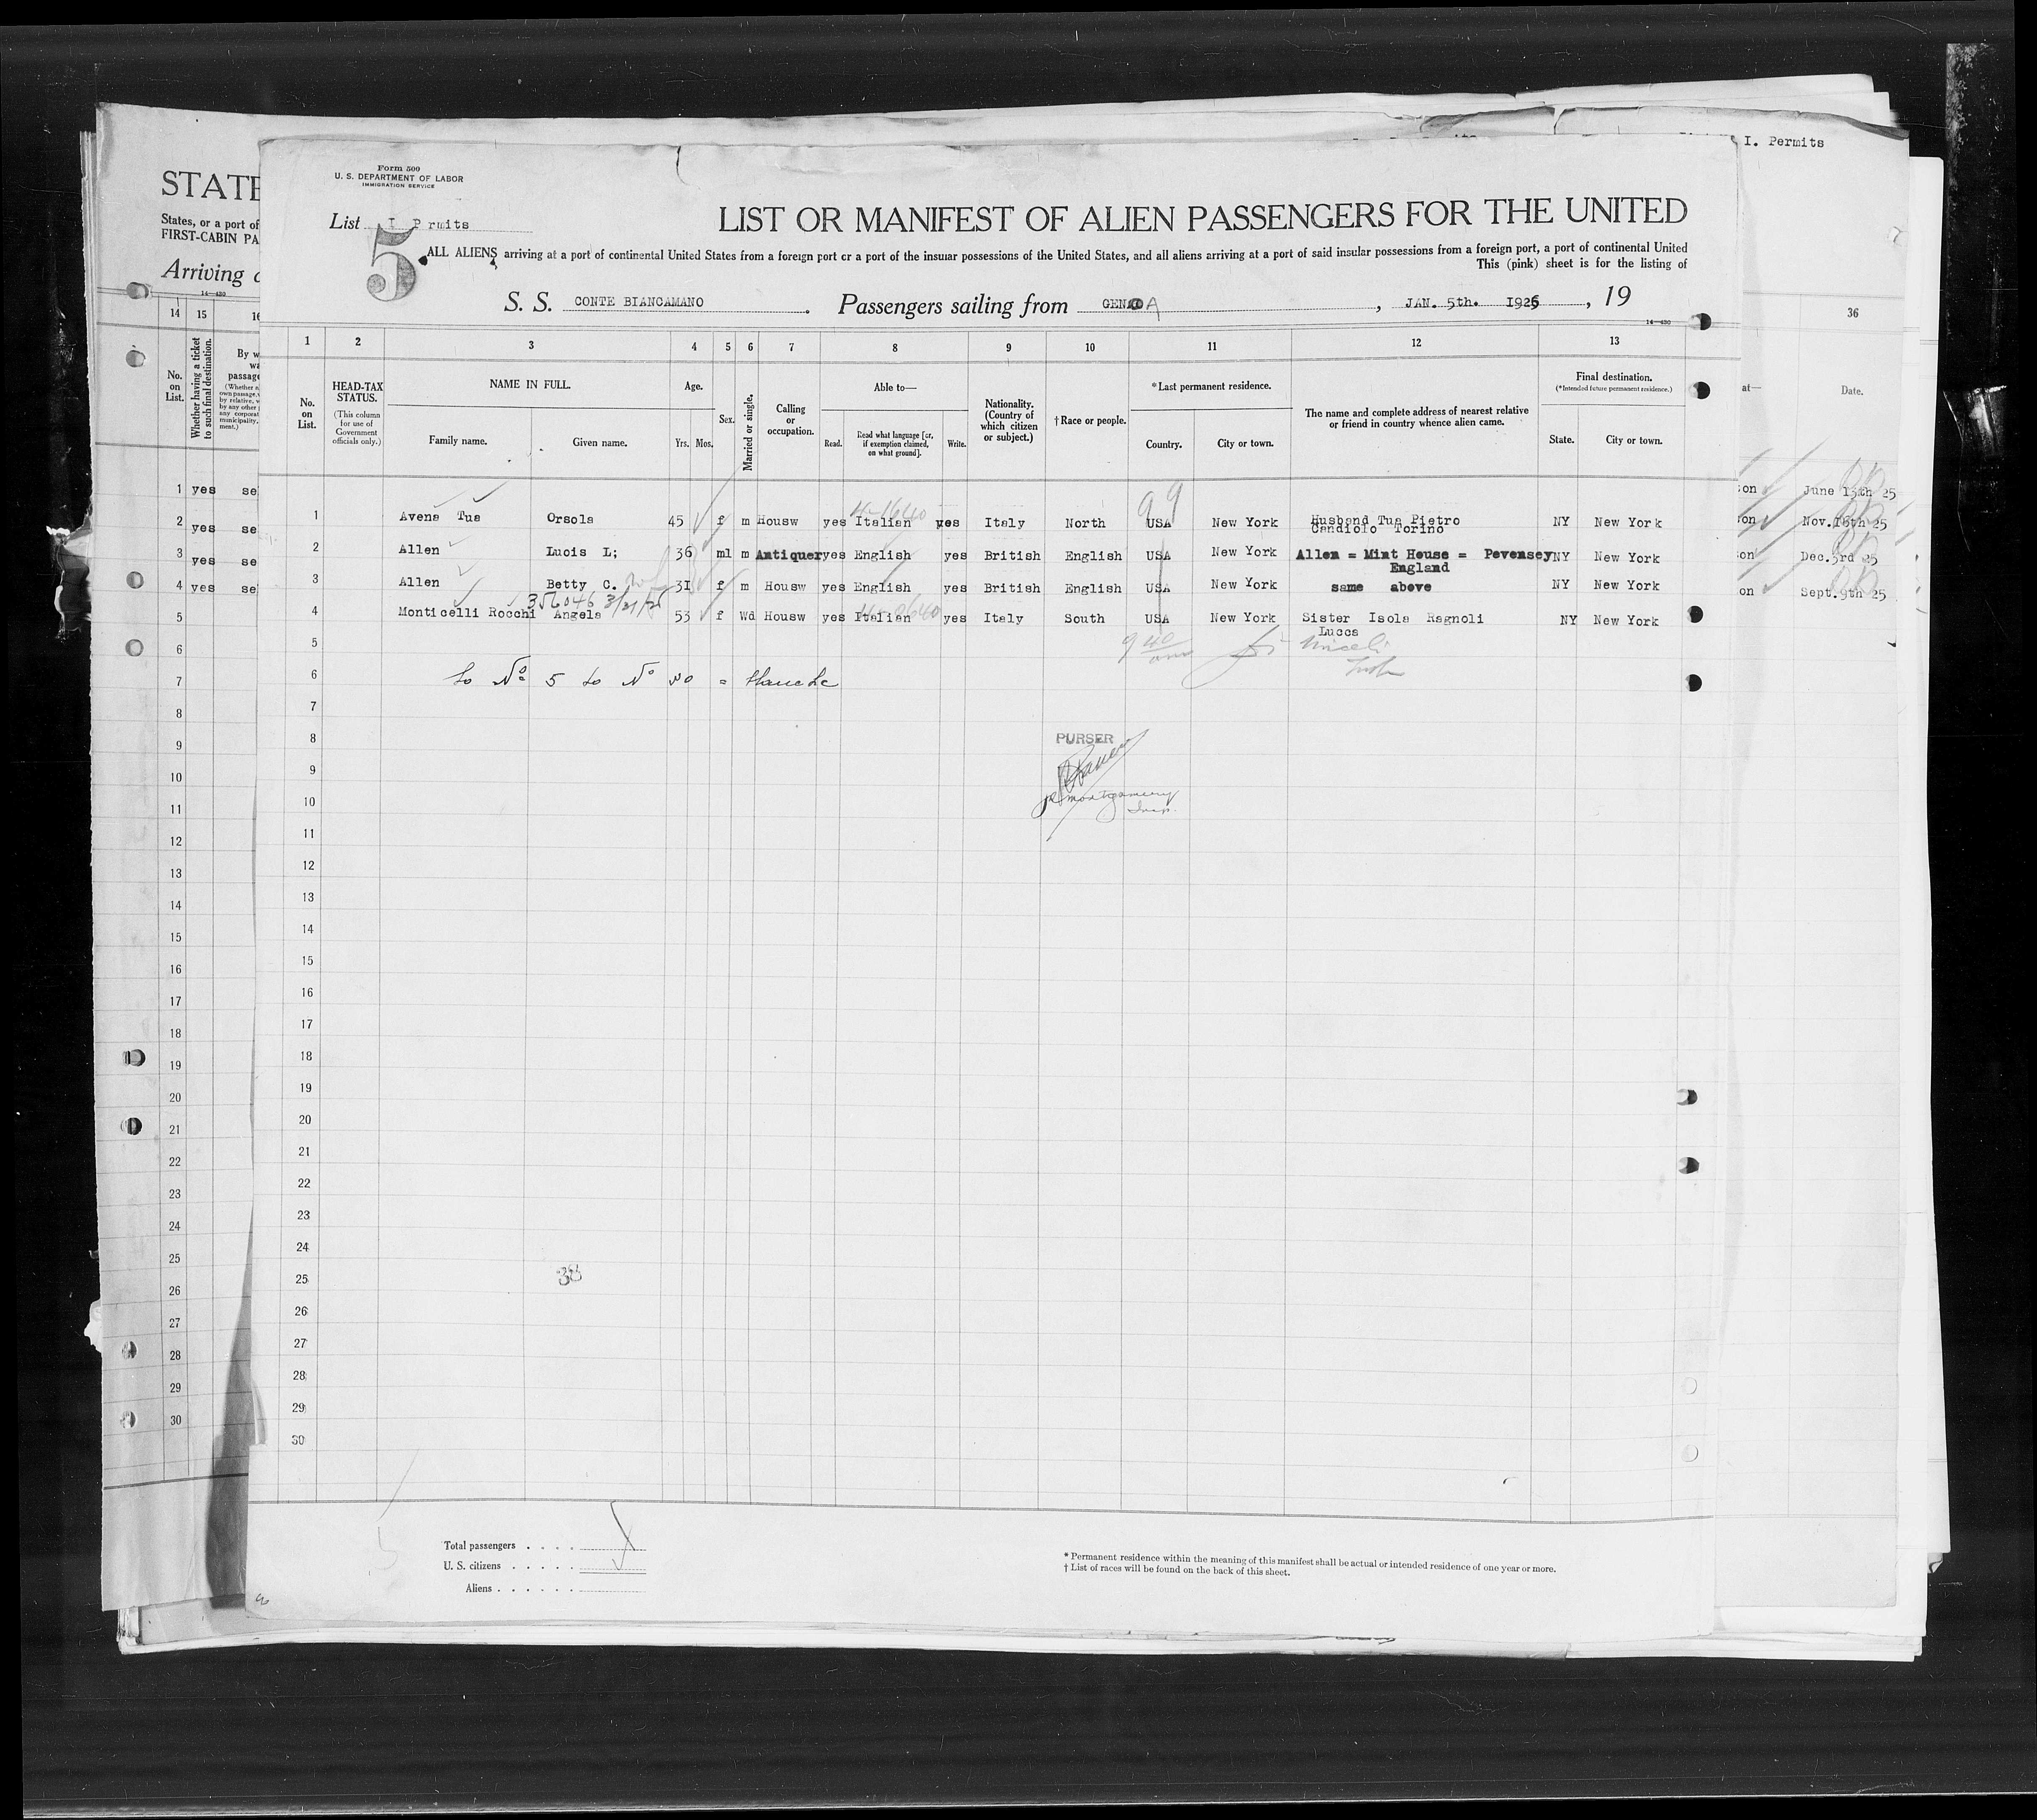 I. Permits
STATE
States, or a port of
FIRST-CABIN PA
Arriving
Form 500
U. S. DEPARTMENT OF LABOR
IMMIGRATION SERVICE
List I P rmits
5
LIST OR MANIFEST OF ALIEN PASSENGERS FOR THE UNITED
ALL ALIENS arriving at a port of continental United States from a foreign port or a port of the insuar possessions of the United States, and all aliens arriving at a port of said insular possessions from a foreign port, a port of continental United
This (pink) sheet is for the listing of
S. S. CONTE BIANCAMANO. Passengers sailing from GENOA, JAN. 5th. 1926, 19
14—430
1 2 3 4 5 6 7 8 9 10 11 12 13
No. on List.
HEAD-TAX STATUS.
(This column for use of Government officials only.)
NAME IN FULL.
Family name. Given name.
Age.
Yrs. Mos.
Sex.
Married or single.
Calling or occupation.
Able to—
Read. Read what language [or, if exemption claimed, on what ground]. Write.
Nationality. (Country of which citizen or subject.)
† Race or people.
* Last permanent residence.
Country. City or town.
The name and complete address of nearest relative or friend in country whence alien came.
Final destination.
(* Intended future permanent residence.)
State. City or town.
14 15 16
No. on List.
Whether having a ticket to such final destination.
36
Date.
1 yes se
2 yes se
3 yes se
4 yes se
1 Avena Tua Orsola 45 f m Housw yes Italian yes Italy North USA New York Husband Tua Pietro NY New York
Candiolo Torino
2 Allen Luois L; 36 ml m Antiquer yes English yes British English USA New York Allen = Mint House = Pevensey NY New York
England
3 Allen Betty C. 31 f m Housw yes English yes British English USA New York same above NY New York
356046 3/31/26
4 Monticelli Rocchi Angela 53 f Wd Housw yes Italian yes Italy South USA New York Sister Isola Ragnoli NY New York
Lucca
on June 13th 25
on Nov. 16th 25
on Dec. 3rd 25
on Sept. 9th 25
99
5
6 to No 5 to No 30 = blanche
7
8 PURSER
9
10 Montgomery
Insp.
11
12
13
14
15
16
17
18
19
20
21
22
23
24
25 38
26
27
28
29
30
5
6
7
8
9
10
11
12
13
14
15
16
17
18
19
20
21
22
23
24
25
26
27
28
29
30
Total passengers
U. S. citizens
Aliens
* Permanent residence within the meaning of this manifest shall be actual or intended residence of one year or more.
† List of races will be found on the back of this sheet.